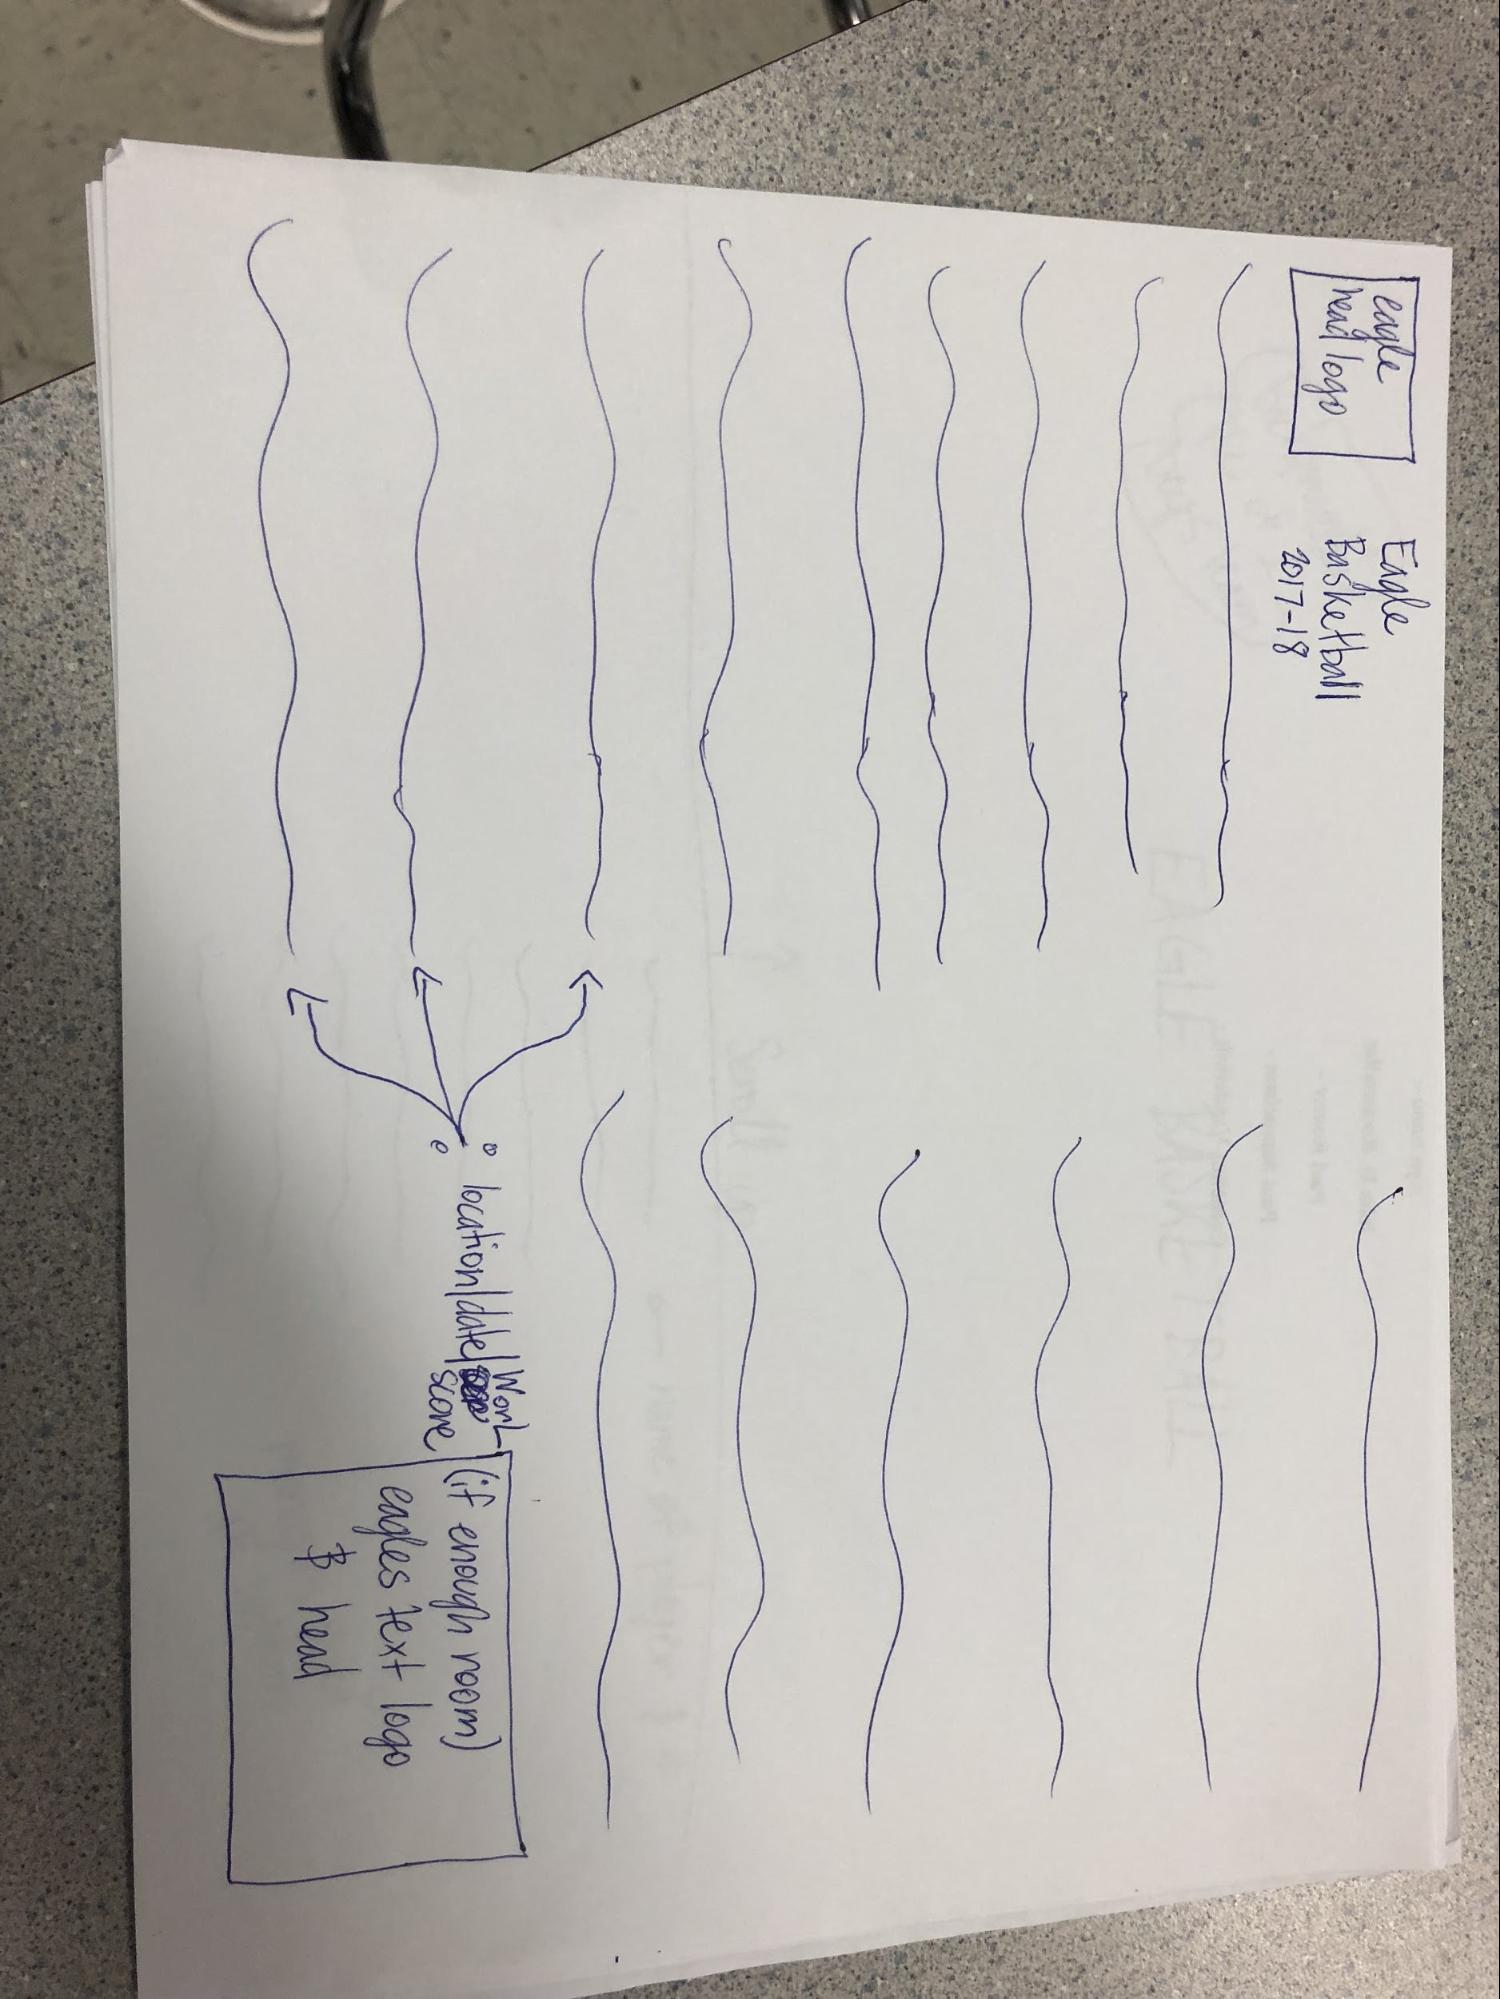 eagle
head logo
Eagle
Basketball
2017-18
location/date/WorL
score
(if enough room)
eagles text logo
& head
EAGLE BASKETBALL